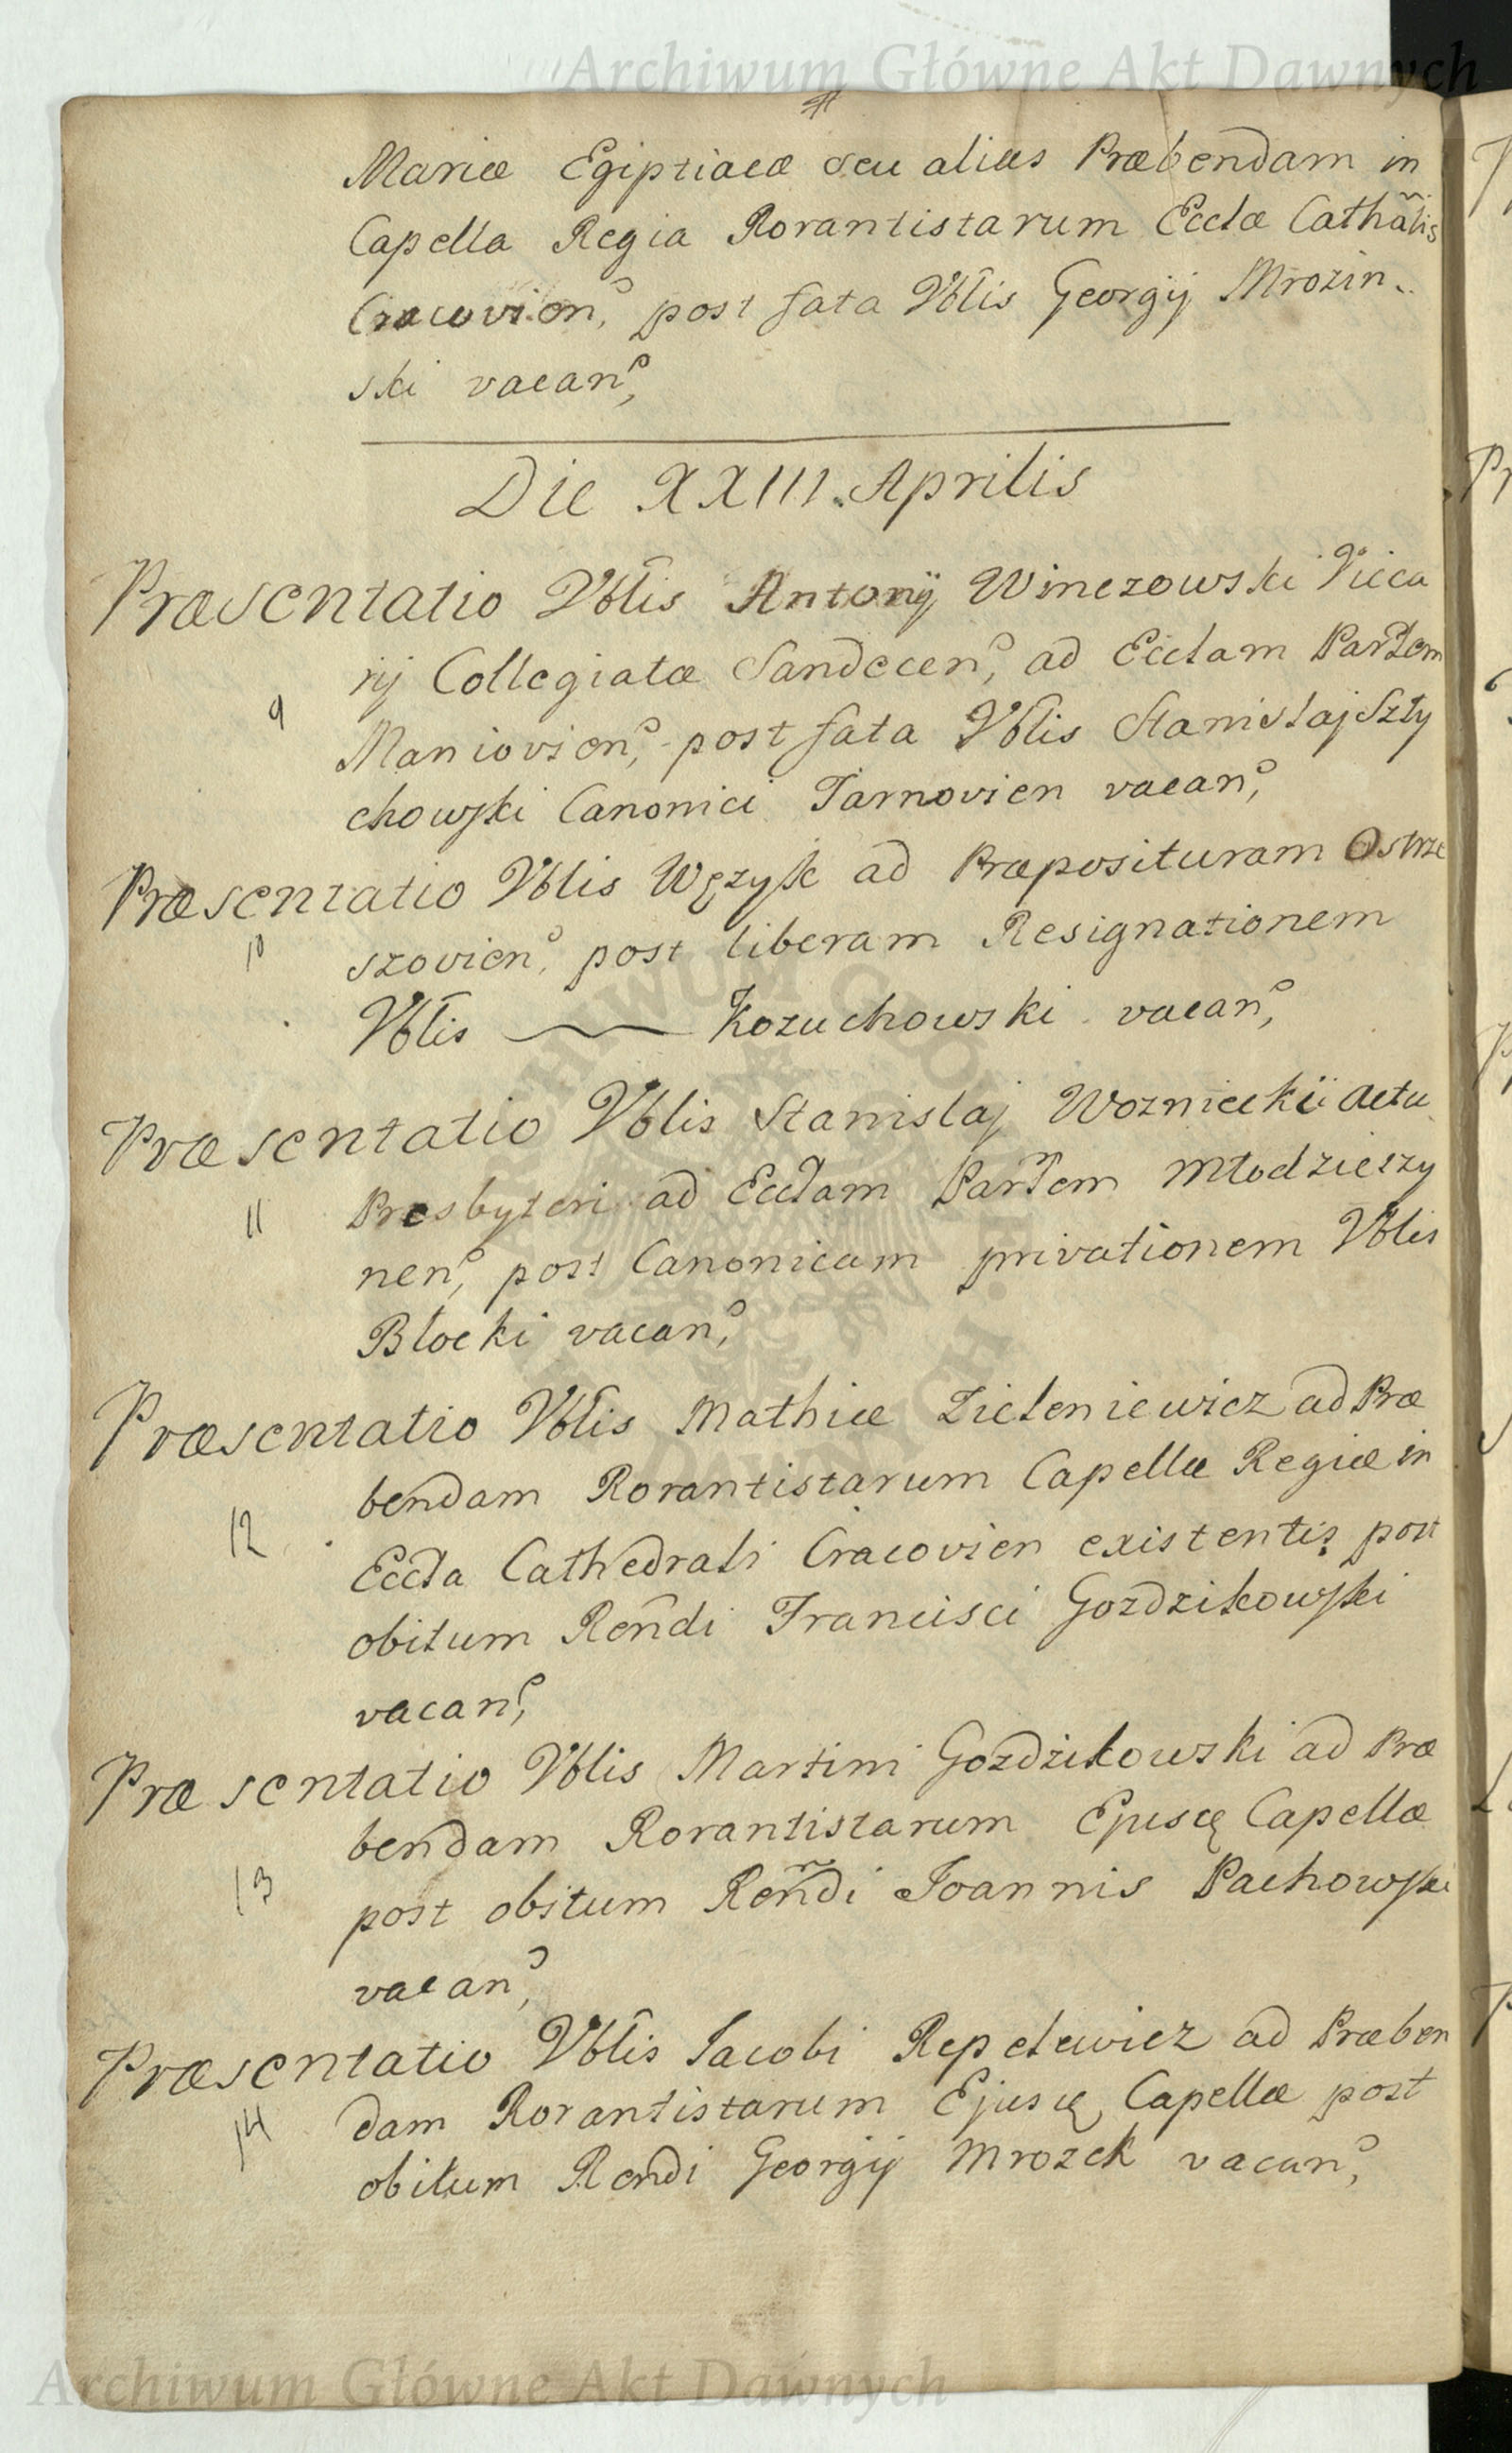 Archiwum Główne Akt Dawnych
Mariæ Egiptiacæ seu alias Præbendam in
Capella Regia Rorantistarum Ecclæ Cathãlis
Cracovien, post fata Vblis Georgij Mrozin-
ski vacan,
Die XXIII. Aprilis
Præsentatio Vblis Antonij Winczowski Vica
rij Collegiatæ Sandecen, ad Ecclam Parlem
9
Maniovien, post fata Vblis Stanislaj Szty
chowski Canonici Tarnovien vacan,
Præsentatio Vblis Wężyk ad Præposituram Ostrze
10
szovien, post liberam Resignationem
Vblis ~ Kozuchowski vacan,
Præsentatio Vblis Stanislaj Woznicckii Actu
11
Presbyteri ad Ecclam Parlem Młodzieszy
nen, post Canonicam privationem Vblis
Błocki vacan,
Præsentatio Vblis Mathiæ Zieleniewicz ad Præ
bendam Rorantistarum Capellæ Regiæ in
12
Eccla Cathedrali Cracovien existentis post
obitum Rendi Francisci Gozdzikowski
vacan,
Præsentatio Vblis Martini Gozdzikowski ad Præ
bendam Rorantistarum Ejusq Capellæ
13
post obitum Rendi Joannis Pachowski
vacan,
Præsentatio Vblis Jacobi Repelewicz ad Præben
14
dam Rorantistarum Ejusq Capellæ post
obitum Rendi Georgij Mrozek vacan,
Archiwum Główne Akt Dawnych